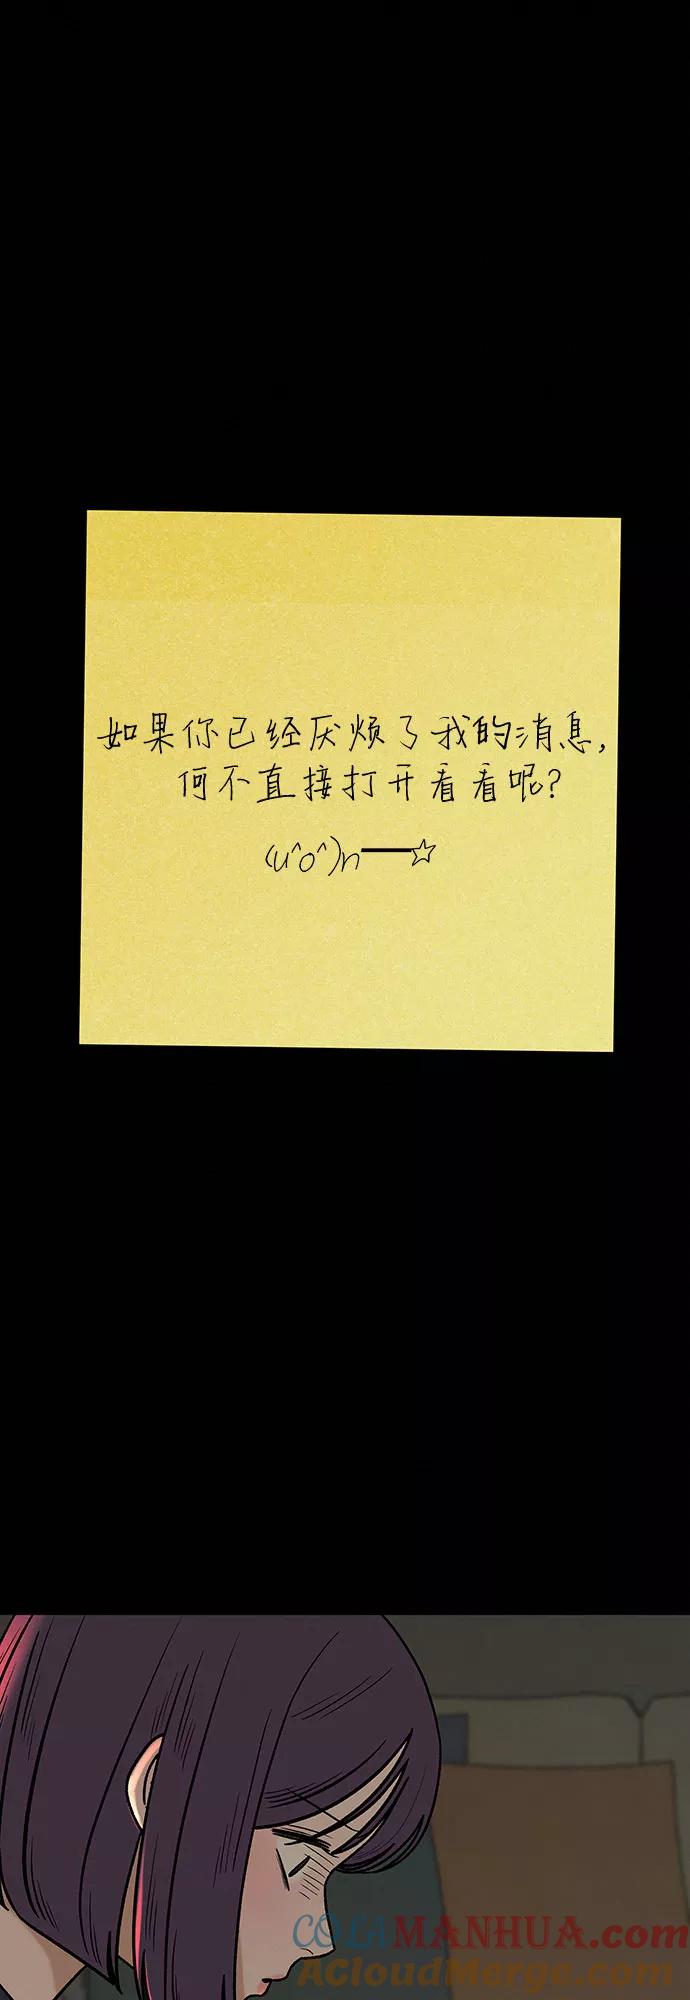 如果你已经厌烦了我的消息,
何不直接打开看看呢?
(u^o^)n━━☆
COLAMANHUA.com
ACloudMerge.com